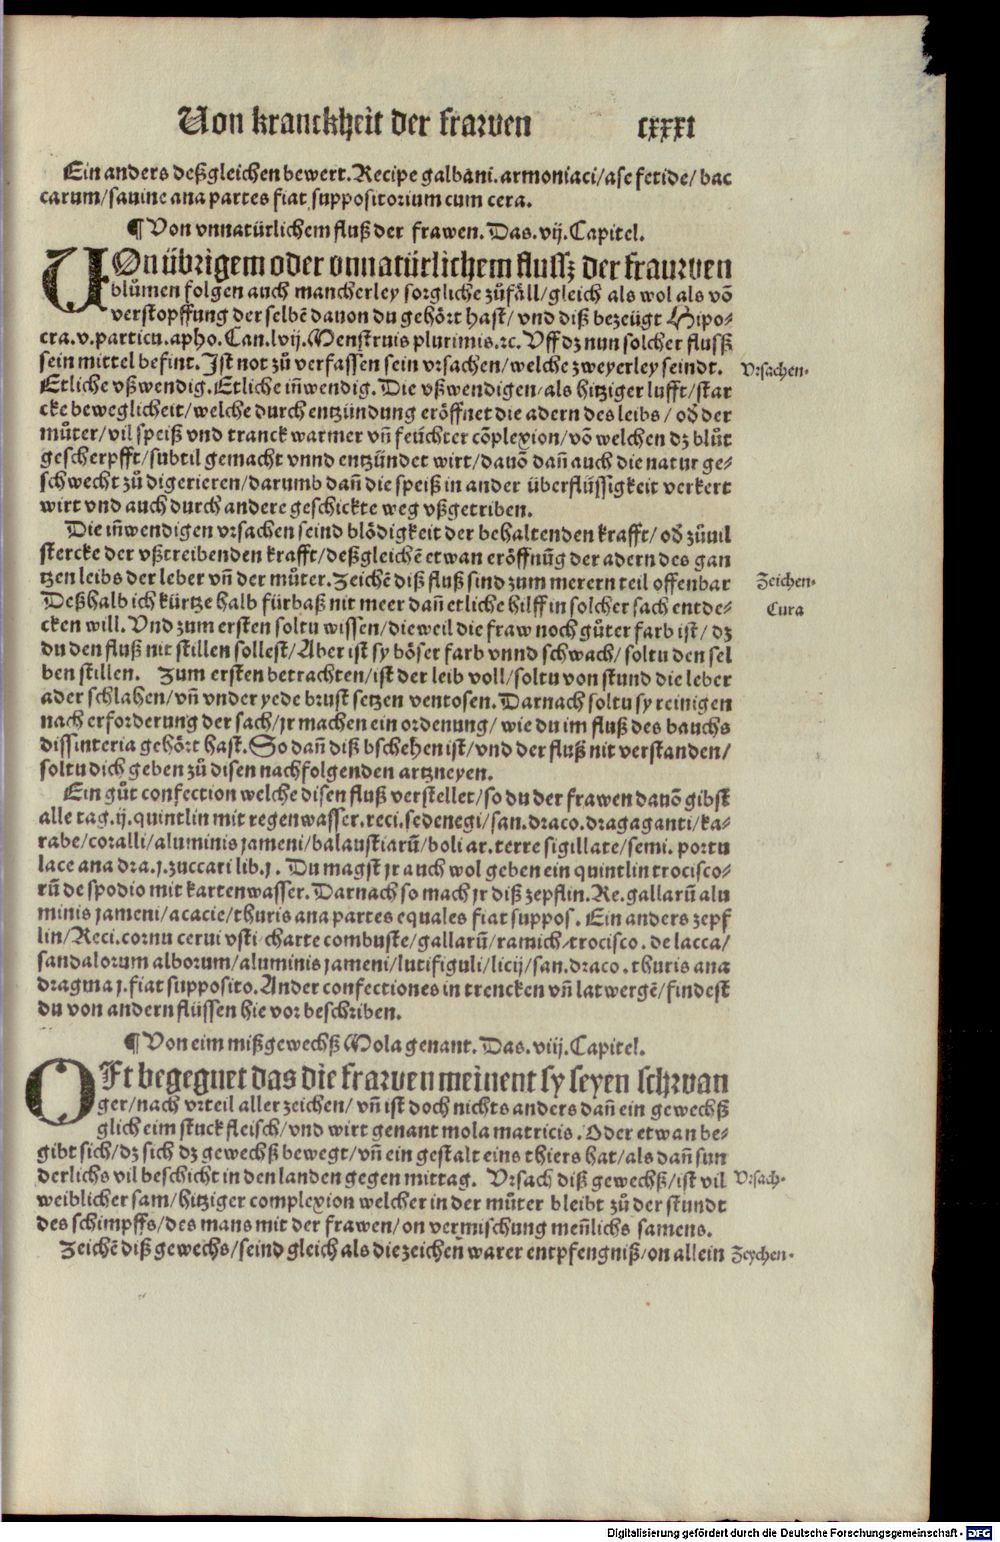 Von kranckheit der frawen cxxxi
Ein anders deßgleichen bewert. Recipe galbani. armoniaci/ ase fetide/ bac
carum/ sauine ana partes fiat suppositorium cum cera.
¶ Von vnnatürlichem fluß der frawen. Das. vij. Capitel.
VOn übrigem oder vnnatürlichem flussz der frauwen
blůmen folgen auch mancherley sorgliche zůfäll/ gleich als wol als võ
verstopffung der selbẽ dauon du gehört hast/ vnd diß bezeügt Hipo-
cra. v. particu. apho. Can. lvij. Menstruis plurimis. ⁊c. Vff dz nun solcher flusß
sein mittel befint. Ist not zů verfassen sein vrsachen/ welche zweyerley seindt.
Vrsachen.
Etliche vßwendig. Etliche iñwendig. Die vßwendigen/ als hitziger lufft/ star
cke beweglicheit/ welche durch entzündung eröffnet die adern des leibs/ od̕ der
můter/ vil speiß vnd tranck warmer vñ feüchter cõplexion/ võ welchen dz blůt
gescherpfft/ subtil gemacht vnnd entzündet wirt/ dauõ dañ auch die natur ge-
schwecht zů digerieren/ darumb dañ die speiß in ander überflüssigkeit verkert
wirt vnd auch durch andere geschickte weg vßgetriben.
Die iñwendigen vrsachen seind blödigkeit der behaltenden krafft/ od̕ zůuil
stercke der vßtreibenden krafft/ deßgleichẽ etwan eröffnũg der adern des gan
tzen leibs der leber vñ der můter. Zeichẽ diß fluß sind zum merern teil offenbar
Zeichen.
Deßhalb ich kürtze halb fürbaß nit meer dañ etliche hilff in solcher sach entde-
Cura
cken will. Vnd zum ersten soltu wissen/ dieweil die fraw noch gůter farb ist/ dz
du den fluß nit stillen sollest/ Aber ist sy böser farb vnnd schwach/ soltu den sel
ben stillen. Zum ersten betrachten/ ist der leib voll/ soltu von stund die leber
ader schlahen/ vñ vnder yede brust setzen ventosen. Darnach soltu sy reinigen
nach erforderung der sach/ jr machen ein ordenung/ wie du im fluß des bauchs
dissinteria gehört hast. So dañ diß bschehen ist/ vnd der fluß nit verstanden/
soltu dich geben zů disen nachfolgenden artzneyen.
Ein gůt confection welche disen fluß verstellet/ so du der frawen dauõ gibst
alle tag. ij. quintlin mit regenwasser. reci. sedenegi/ san. draco. dragaganti/ ka-
rabe/ coralli/ aluminis jameni/ balaustiarũ/ boli ar. terre sigillate/ semi. portu
lace ana dra. j. zuccari lib. j. Du magst jr auch wol geben ein quintlin trocisco-
rũ de spodio mit kartenwasser. Darnach so mach jr diß zepflin. Re. gallarũ alu
minis jameni/ acacie/ thuris ana partes equales fiat suppos. Ein anders zepf
lin/ Reci. cornu cerui vsti charte combuste/ gallarũ/ ramich/ trocisco. de lacca/
sandalorum alborum/ aluminis jameni/ lutifiguli/ licij/ san. draco. thuris ana
dragma j. fiat supposito. Ander confectiones in trencken vñ latwergẽ/ findest
du von andern flüssen hie vor beschriben.
¶ Von eim mißgewechß Mola genant. Das. viij. Capitel.
OFt begegnet das die frawen meinent sy seyen schwan
ger/ nach vrteil aller zeichen/ vñ ist doch nichts anders dañ ein gewechß
glich eim stuck fleisch/ vnd wirt genant mola matricis. Oder etwan be-
gibt sich/ dz sich dz gewechß bewegt/ vñ ein gestalt eins thiers hat/ als dañ sun
derlichs vil beschicht in den landen gegen mittag. Vrsach diß gewechß/ ist vil
Vrsach.
weiblicher sam/ hitziger complexion welcher in der můter bleibt zů der stundt
des schimpffs/ des mans mit der frawen/ on vermischung meñlichs samens.
Zeichẽ diß gewechs/ seind gleich als die zeicheñ warer entpfengniß/ on allein
Zeychen.
Digitalisierung gefördert durch die Deutsche Forschungsgemeinschaft - DFG